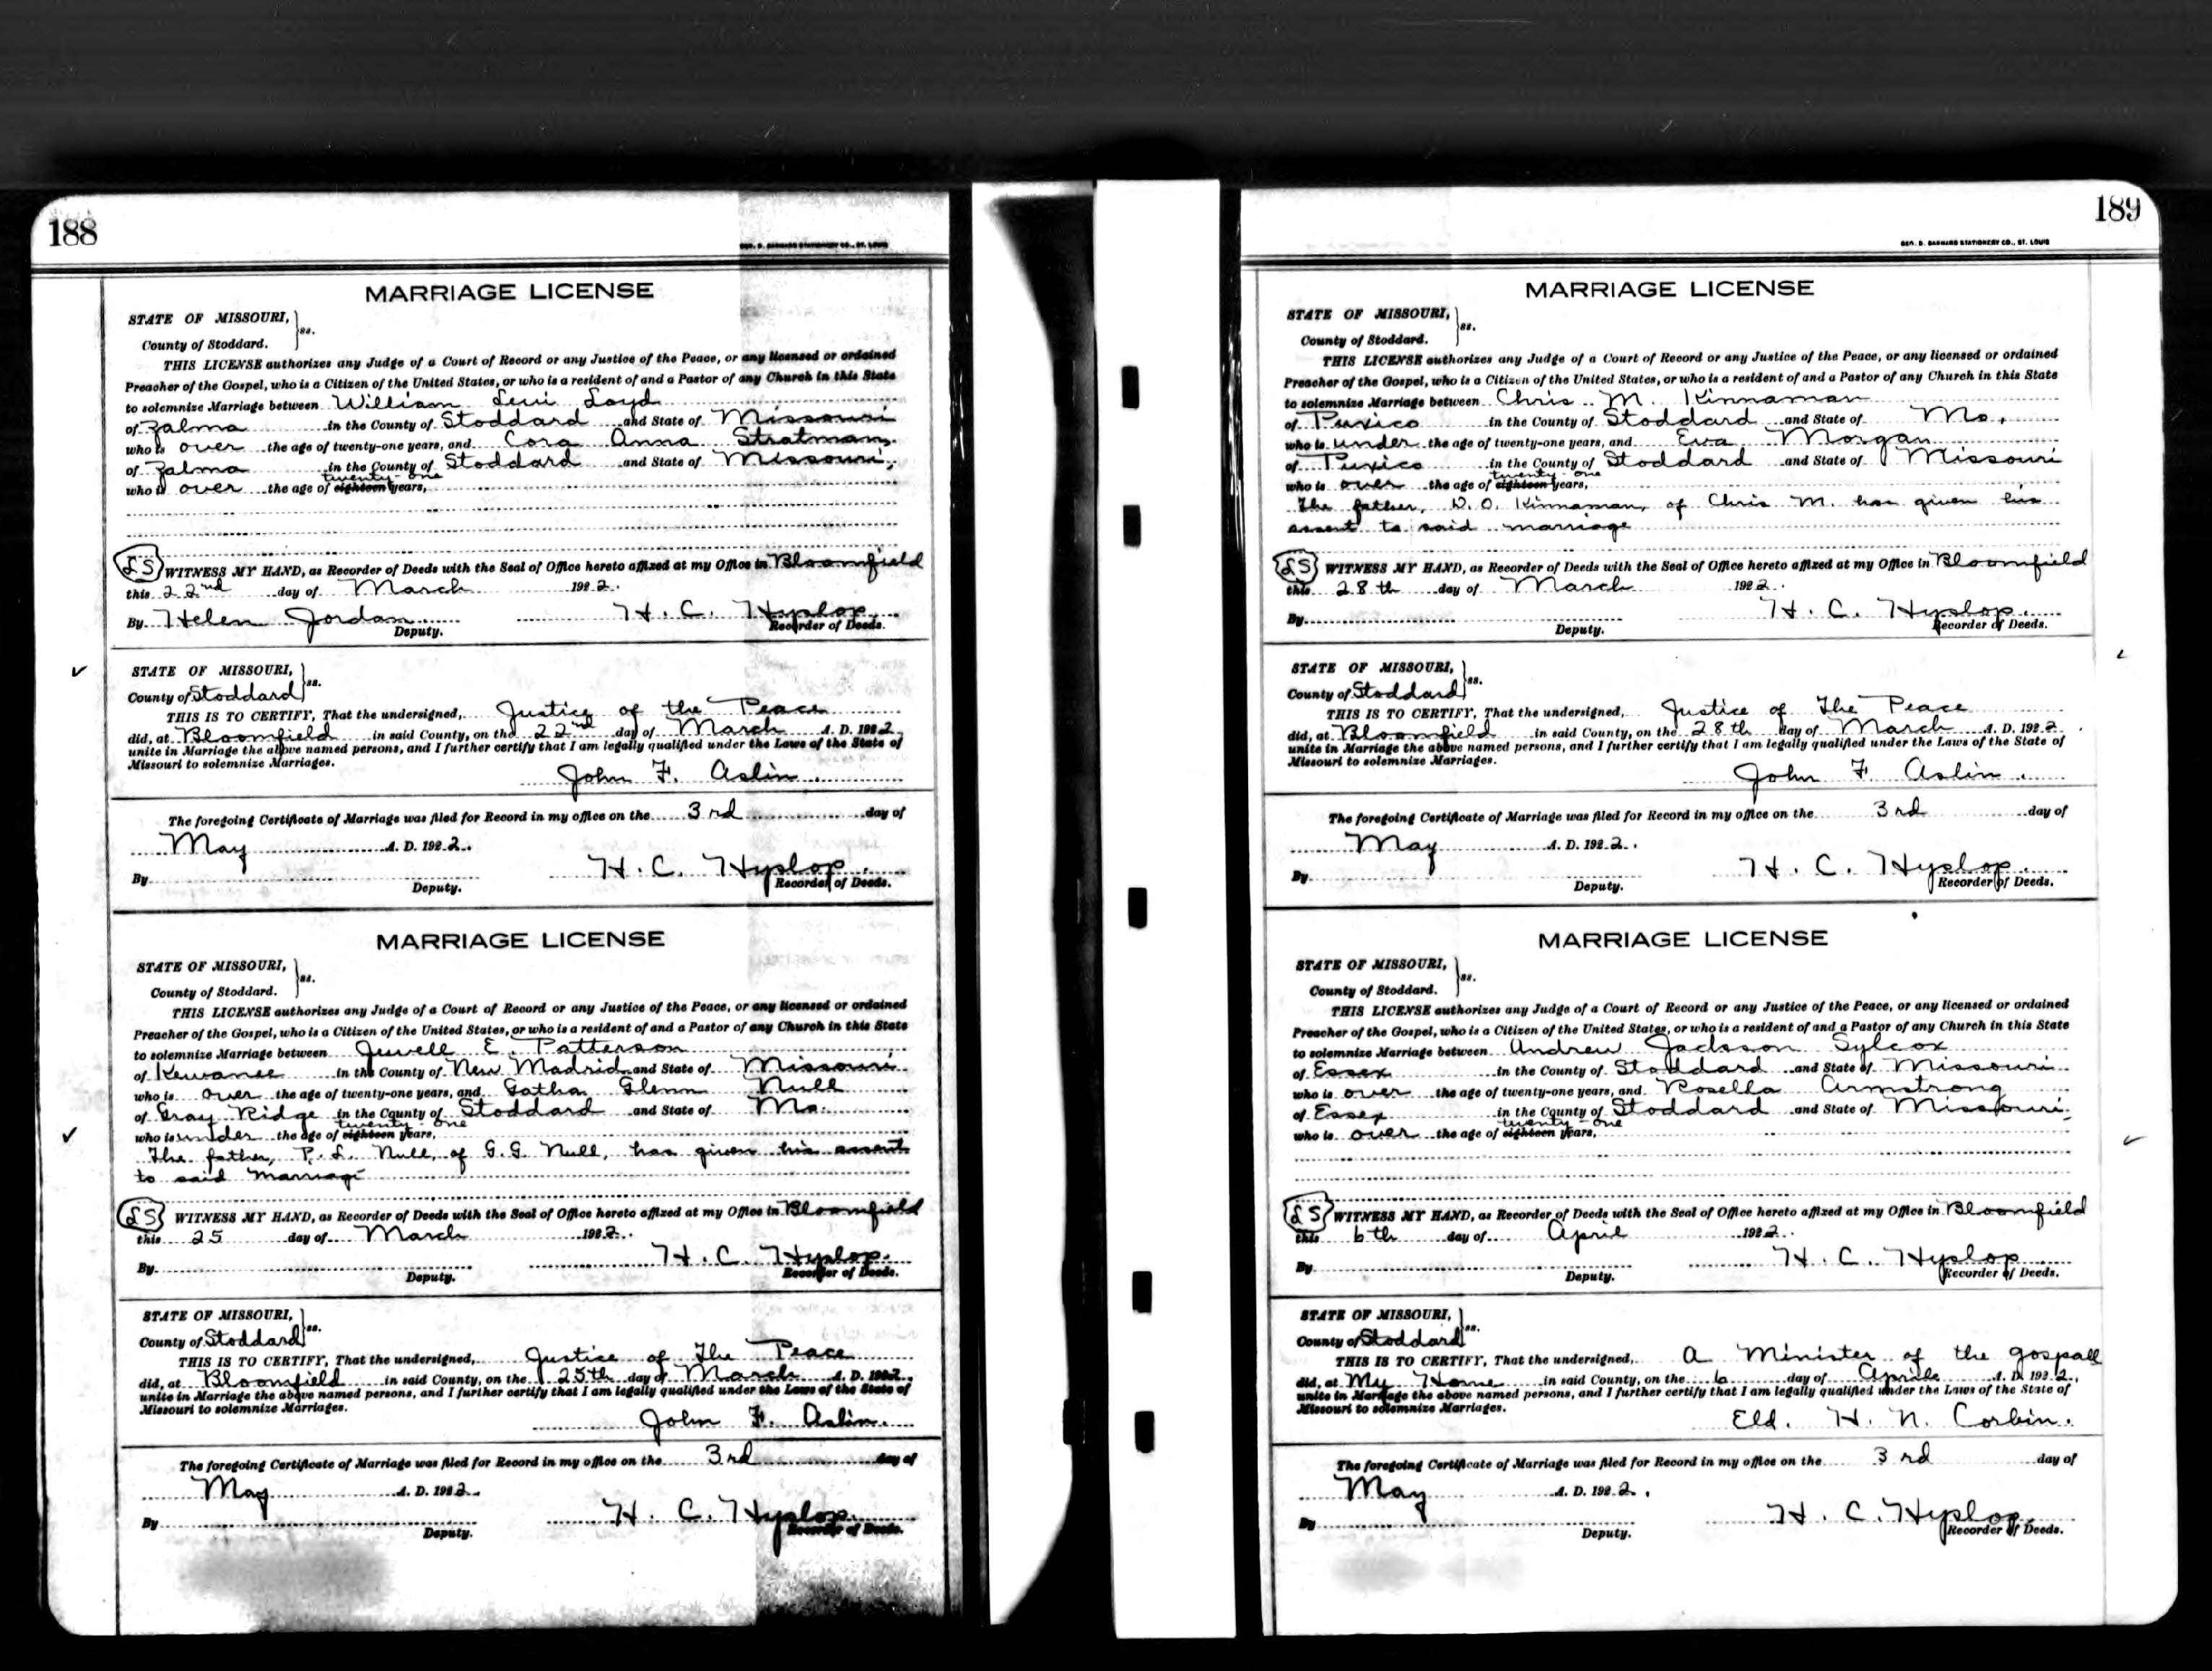 188
GEO. D. BARNARD STATIONERY CO., ST. LOUIS
MARRIAGE LICENSE
STATE OF MISSOURI,
ss.
County of Stoddard.
THIS LICENSE authorizes any Judge of a Court of Record or any Justice of the Peace, or any licensed or ordained
Preacher of the Gospel, who is a Citizen of the United States, or who is a resident of and a Pastor of any Church in this State
to solemnize Marriage between William Levi Loyd
of Zalma in the County of Stoddard and State of Missouri
who is over the age of twenty-one years, and Cora Anna Stratman,
of Zalma in the County of Stoddard and State of Missouri,
twenty-one
who is over the age of eighteen years,
LS WITNESS MY HAND, as Recorder of Deeds with the Seal of Office hereto affixed at my Office in Bloomfield
this 22nd day of March 1922.
By Helen Jordan H. C. Hyslop
Deputy. Recorder of Deeds.
STATE OF MISSOURI,
ss.
County of Stoddard
THIS IS TO CERTIFY, That the undersigned, Justice of the Peace
did, at Bloomfield in said County, on the 22nd day of March A. D. 1922,
unite in Marriage the above named persons, and I further certify that I am legally qualified under the Laws of the State of
Missouri to solemnize Marriages.
John F. Aslin
The foregoing Certificate of Marriage was filed for Record in my office on the 3rd day of
May A. D. 1922.
By H. C. Hyslop
Deputy. Recorder of Deeds.
MARRIAGE LICENSE
STATE OF MISSOURI,
ss.
County of Stoddard.
THIS LICENSE authorizes any Judge of a Court of Record or any Justice of the Peace, or any licensed or ordained
Preacher of the Gospel, who is a Citizen of the United States, or who is a resident of and a Pastor of any Church in this State
to solemnize Marriage between Jewell E. Patterson
of Kewanee in the County of New Madrid and State of Missouri
who is over the age of twenty-one years, and Gatha Glenn Null
of Gray Ridge in the County of Stoddard and State of Mo.
twenty-one
who is under the age of eighteen years,
The father, P. L. Null, of G. G. Null, has given his assent
to said marriage
LS WITNESS MY HAND, as Recorder of Deeds with the Seal of Office hereto affixed at my Office in Bloomfield
this 25 day of March 1922.
By H. C. Hyslop.
Deputy. Recorder of Deeds.
STATE OF MISSOURI,
ss.
County of Stoddard
THIS IS TO CERTIFY, That the undersigned, Justice of The Peace
did, at Bloomfield in said County, on the 25th day of March A. D. 1922,
unite in Marriage the above named persons, and I further certify that I am legally qualified under the Laws of the State of
Missouri to solemnize Marriages.
John F. Aslin.
The foregoing Certificate of Marriage was filed for Record in my office on the 3rd day of
May A. D. 1922.
By H. C. Hyslop
Deputy. Recorder of Deeds.
189
GEO. D. BARNARD STATIONERY CO., ST. LOUIS
MARRIAGE LICENSE
STATE OF MISSOURI,
ss.
County of Stoddard.
THIS LICENSE authorizes any Judge of a Court of Record or any Justice of the Peace, or any licensed or ordained
Preacher of the Gospel, who is a Citizen of the United States, or who is a resident of and a Pastor of any Church in this State
to solemnize Marriage between Chris M. Kinnaman
of Puxico in the County of Stoddard and State of Mo,
who is under the age of twenty-one years, and Eva Morgan
of Puxico in the County of Stoddard and State of Missouri
twenty-one
who is over the age of eighteen years,
The father, D. O. Kinnaman, of Chris M. has given his
assent to said marriage
LS WITNESS MY HAND, as Recorder of Deeds with the Seal of Office hereto affixed at my Office in Bloomfield
this 28th day of March 1922.
By H. C. Hyslop.
Deputy. Recorder of Deeds.
STATE OF MISSOURI,
ss.
County of Stoddard
THIS IS TO CERTIFY, That the undersigned, Justice of The Peace
did, at Bloomfield in said County, on the 28th day of March A. D. 1922.
unite in Marriage the above named persons, and I further certify that I am legally qualified under the Laws of the State of
Missouri to solemnize Marriages.
John F Aslin.
The foregoing Certificate of Marriage was filed for Record in my office on the 3rd day of
May A. D. 1922.
By H. C. Hyslop.
Deputy. Recorder of Deeds.
MARRIAGE LICENSE
STATE OF MISSOURI,
ss.
County of Stoddard.
THIS LICENSE authorizes any Judge of a Court of Record or any Justice of the Peace, or any licensed or ordained
Preacher of the Gospel, who is a Citizen of the United States, or who is a resident of and a Pastor of any Church in this State
to solemnize Marriage between Andrew Jackson Sylcox
of Essex in the County of Stoddard and State of Missouri
who is over the age of twenty-one years, and Rosella Armstrong
of Essex in the County of Stoddard and State of Missouri
twenty-one
who is over the age of eighteen years,
LS WITNESS MY HAND, as Recorder of Deeds with the Seal of Office hereto affixed at my Office in Bloomfield
this 6th day of April 1922.
By H. C. Hyslop
Deputy. Recorder of Deeds.
STATE OF MISSOURI,
ss.
County of Stoddard
THIS IS TO CERTIFY, That the undersigned, A Minister of the gospall
did, at My Home in said County, on the 6 day of Aprile A. D. 1922,
unite in Marriage the above named persons, and I further certify that I am legally qualified under the Laws of the State of
Missouri to solemnize Marriages.
Eld. H. N. Corbin.
The foregoing Certificate of Marriage was filed for Record in my office on the 3rd day of
May A. D. 1922.
By H. C. Hyslop
Deputy. Recorder of Deeds.